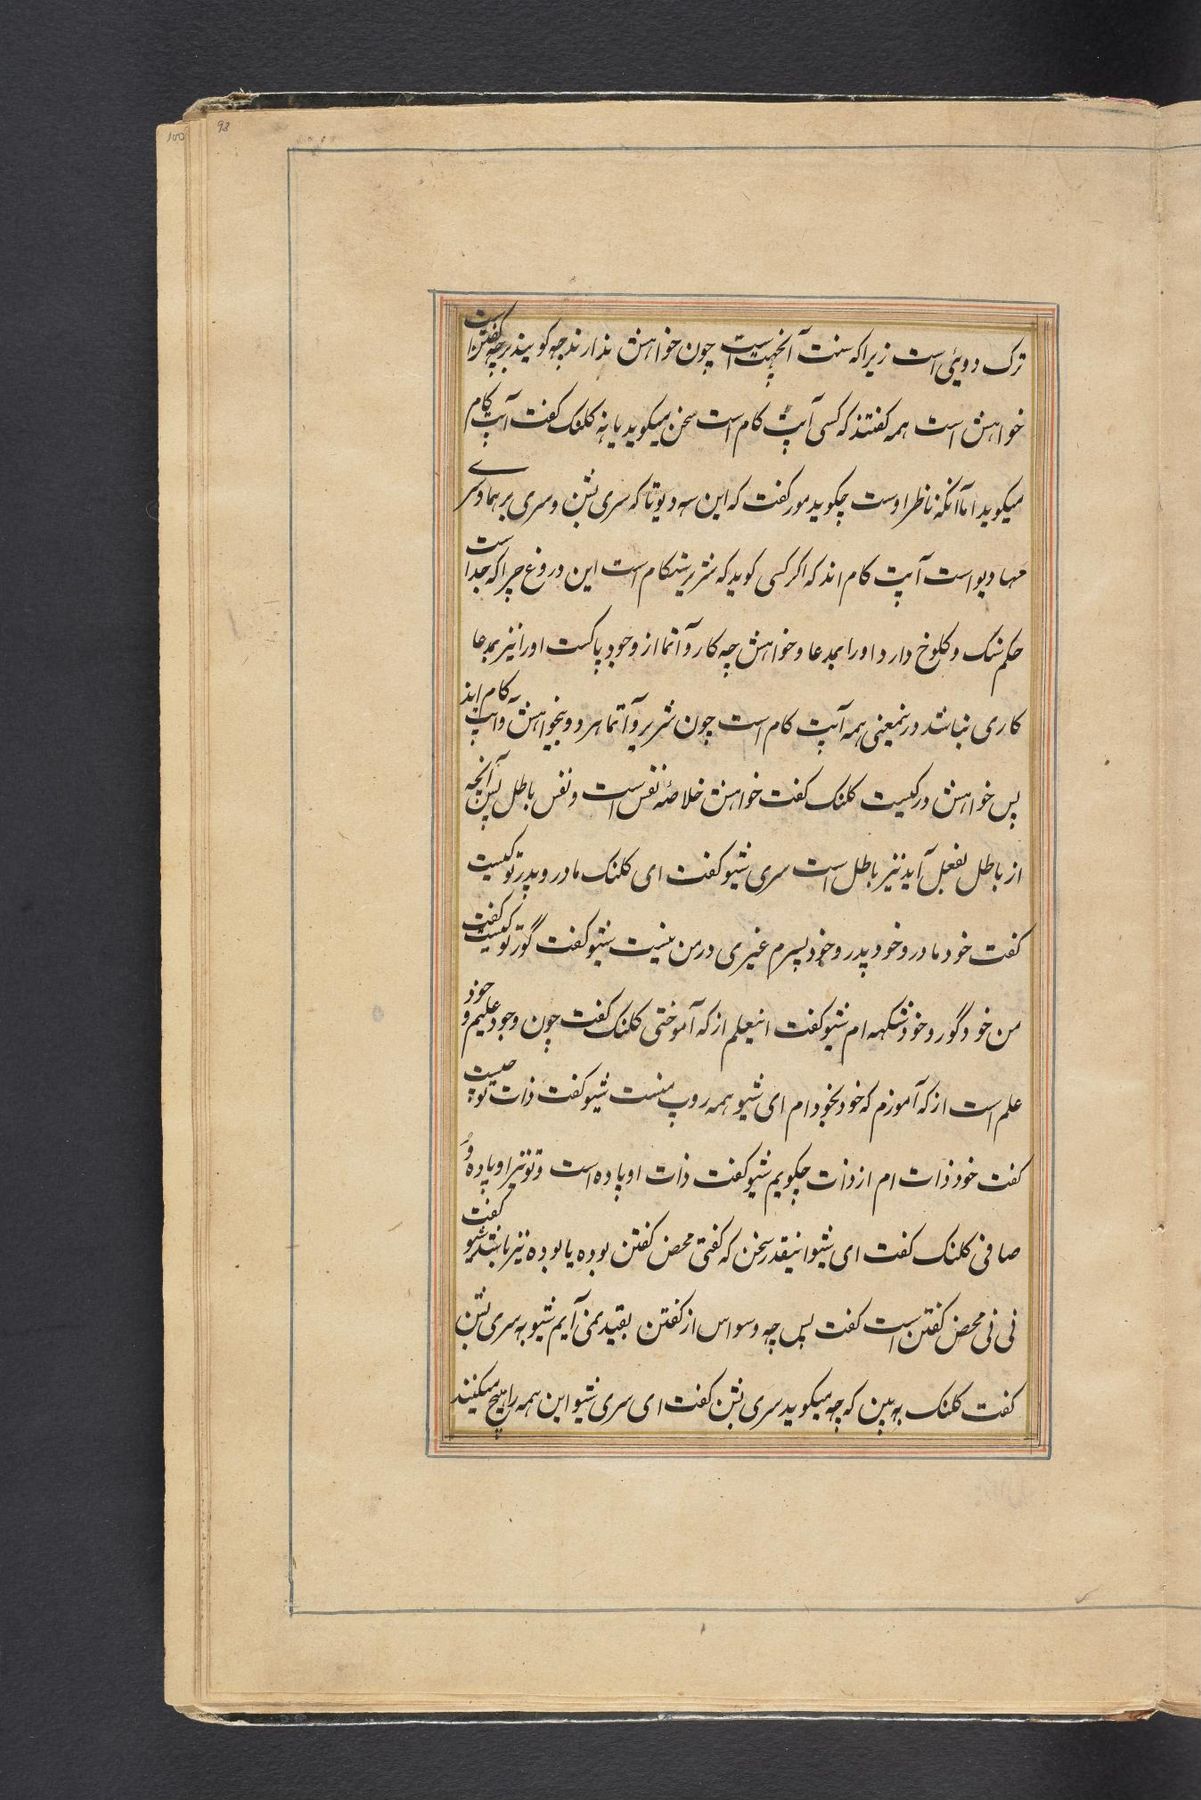 98
100
ترک دویی است زیرا که سنت آنجهت است چون خواهش ندارند چه گویند بر چه گفتن است
خواهش است همه گفتند که کسی آپت کام است سخن میگوید یا نه کلنک گفت آپت کام
میگوید اما آنکه ناظر اوست چگوید مور گفت که این سه دیوتا که سری بشن و سری برهما و سری
مهادیو است آپت کام اند که اگر کسی گوید که شریر نشکام است این دروغ چرا که جدا است
حکم سنک و کلوخ دارد او را بمدعا و خواهش چه کار و آنما از وجود پاکست او را نیز بمدعا
کاری نباشد درینمعنی همه آپت کام است چون شریر و آتما هر دو بیخواهش و آپت کام اند
پس خواهش در کیست کلنک گفت خواهش خلاصهٔ نفس است و نفس باطل پس آنچه
از باطل بفعل آید نیز باطل است سری شیو گفت ای کلنک مادر و پدر تو کیست
گفت خود مادر و خود پدر و خود پسرم غیری در من نیست شیو گفت گور تو کیست گفت
من خود گور و خود شکهه ام شیو گفت اینعلم از که آموختی کلنک گفت چون وجود علیم و خود
علم است از که آموزم که خود بخود ام ای شیو همه روپ منست شیو گفت ذات تو چیست
گفت خود ذات ام از ذات چگویم شیو گفت ذات اوپاده است و تو نیز اوپاده و
صافی کلنک گفت ای شیو اینقدر سخن که گفتی محض گفتن بوده یا بوده نیز باشد شیو گفت
نی نی محض گفتن است گفت پس چه وسواس از گفتن بقید نمی آیم شیو به سری بشن
گفت کلنک به بین که چه میگوید سری بشن گفت ای سری شیو این همه را هیچ میکنند